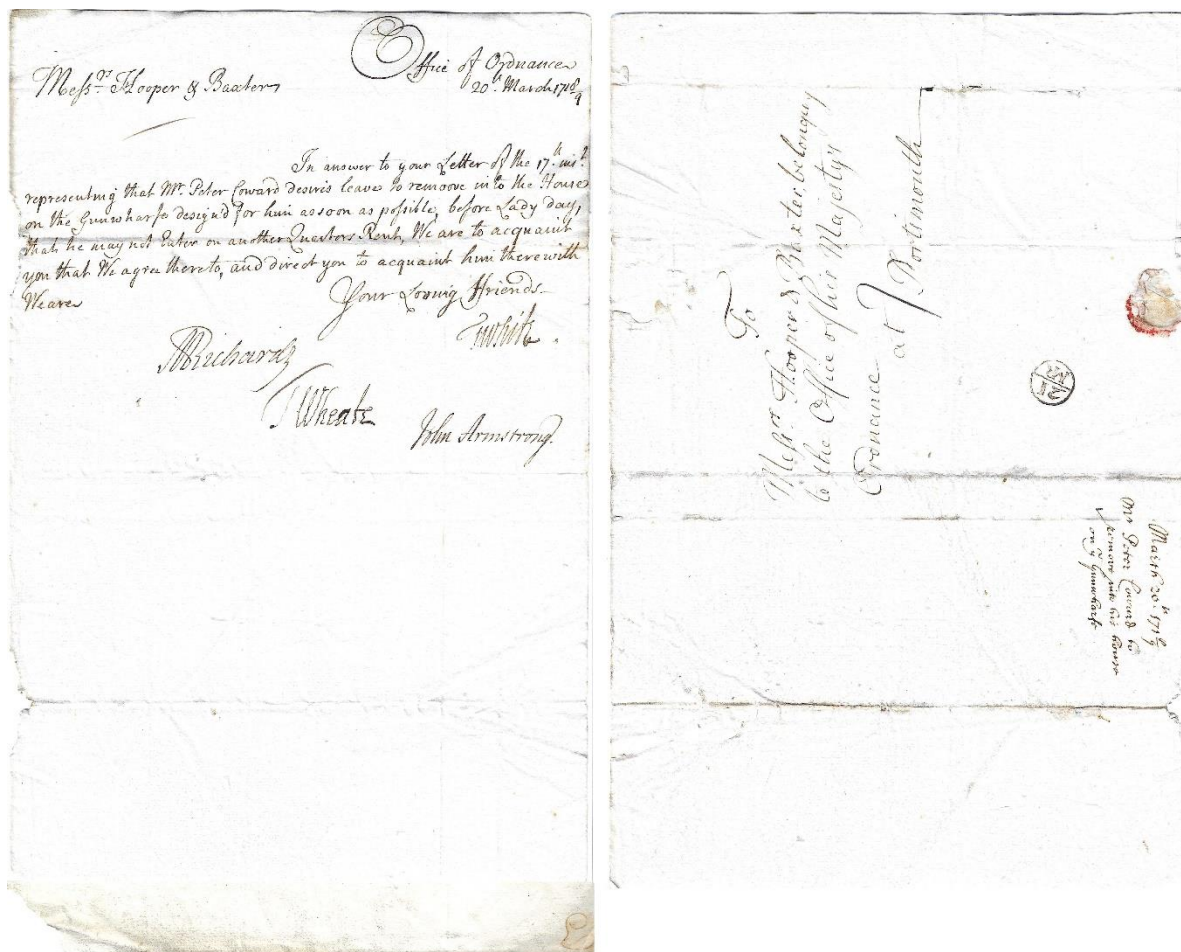 Office of Ordnance
20th March 1718/9
Messrs Hooper & Baxter
In answer to your Letter of the 17th inst
representing that Mr. Peter Coward desires leave to remoove into the House
on the Gunwharfe design'd for him as soon as possible, before Lady day,
that he may not Enter on another Quarters Rent, We are to acquaint
you that We agree thereto, and direct you to acquaint him therewith
We are
Your Loving ffriends
TWhite.
MRichards
TWheate
John Armstrong.
To
Messrs Hooper & Baxter belonging
to the Office of his Majesty's
Ordnance
at Portsmouth
21
MR
March 20th 1718/9
Mr Peter Coward to
remove into his house
on ye Gunwharfe